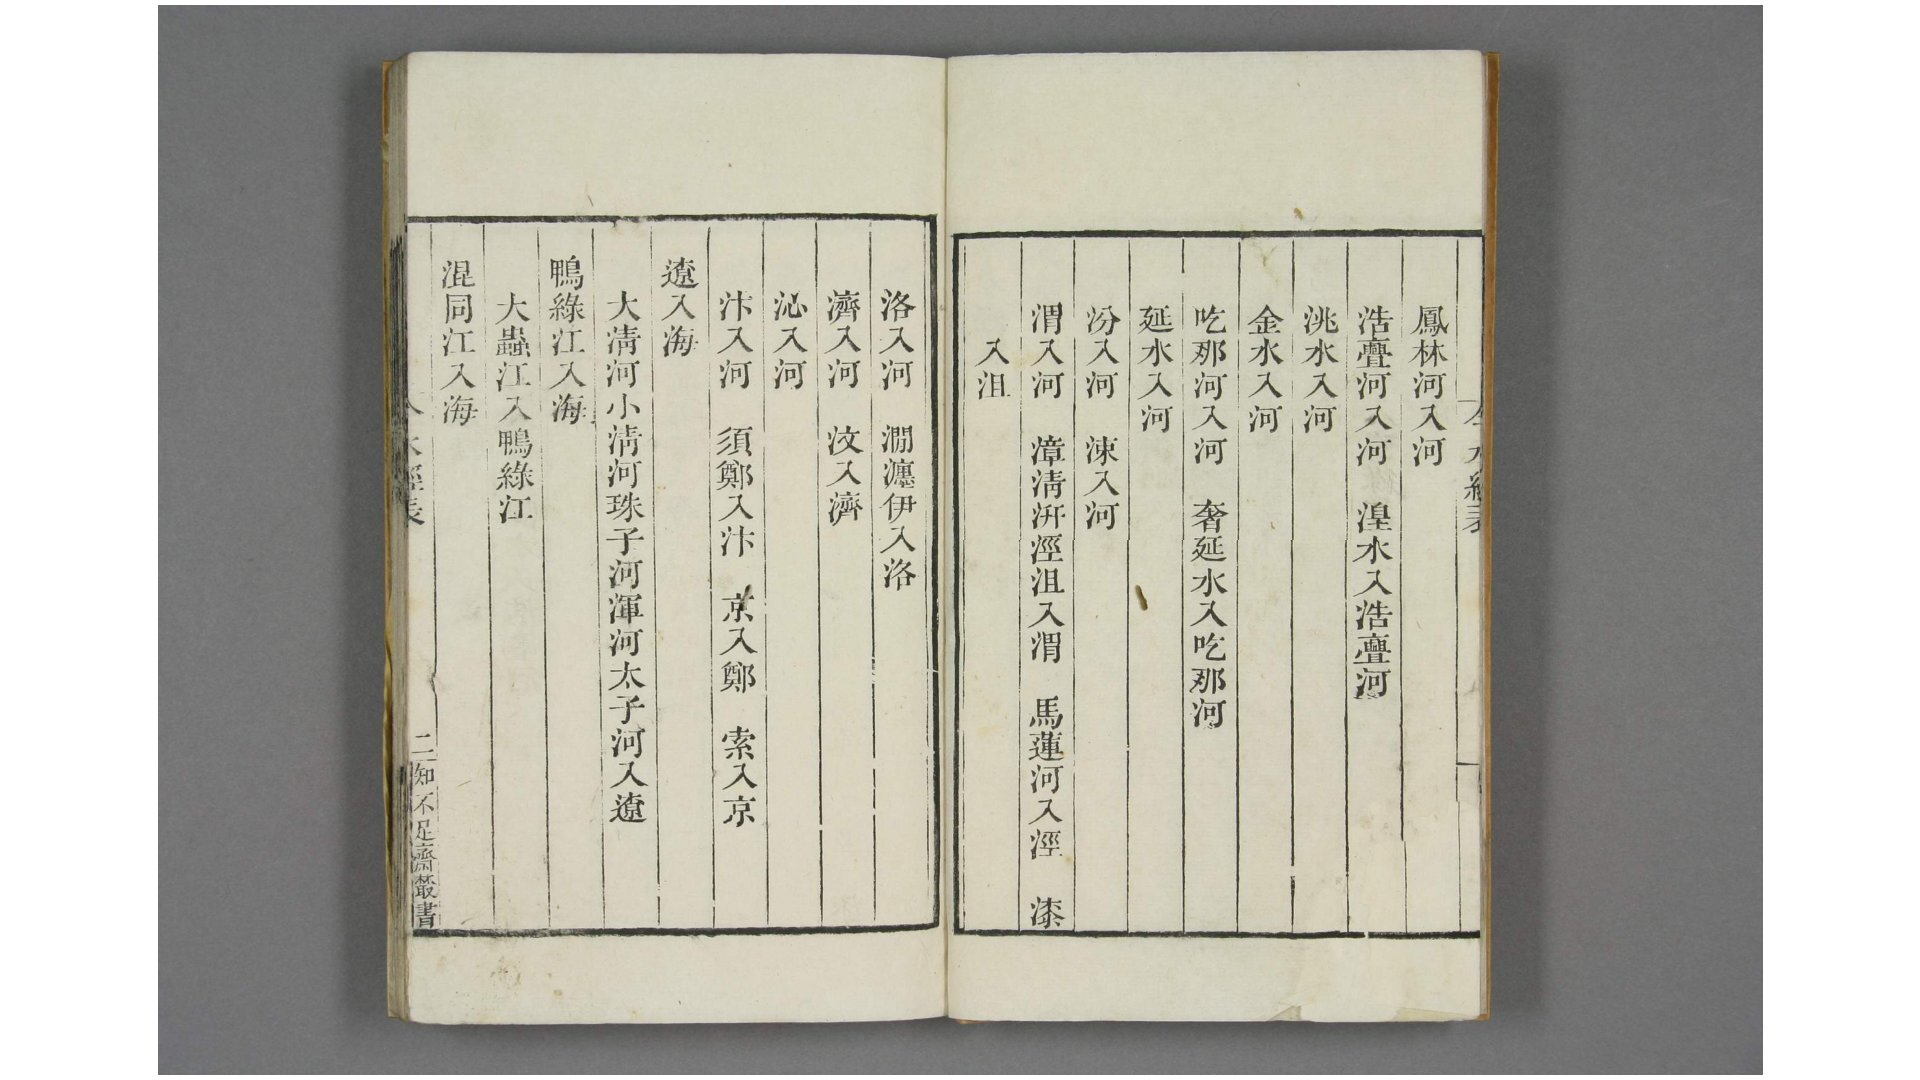 今水經表
鳳林河入河
浩亹河入河　湟水入浩亹河
洮水入河
金水入河
吃那河入河　奢延水入吃那河
延水入河
汾入河　涑入河
渭入河　漳清汧涇沮入渭　馬蓮河入涇　漆
入沮
洛入河　澗瀍伊入洛
濟入河　汶入濟
沁入河
汴入河　須鄭入汴　京入鄭　索入京
遼入海
大清河小清河珠子河渾河太子河入遼
鴨綠江入海
大蟲江入鴨綠江
混同江入海
今水經表
二
知不足齋叢書